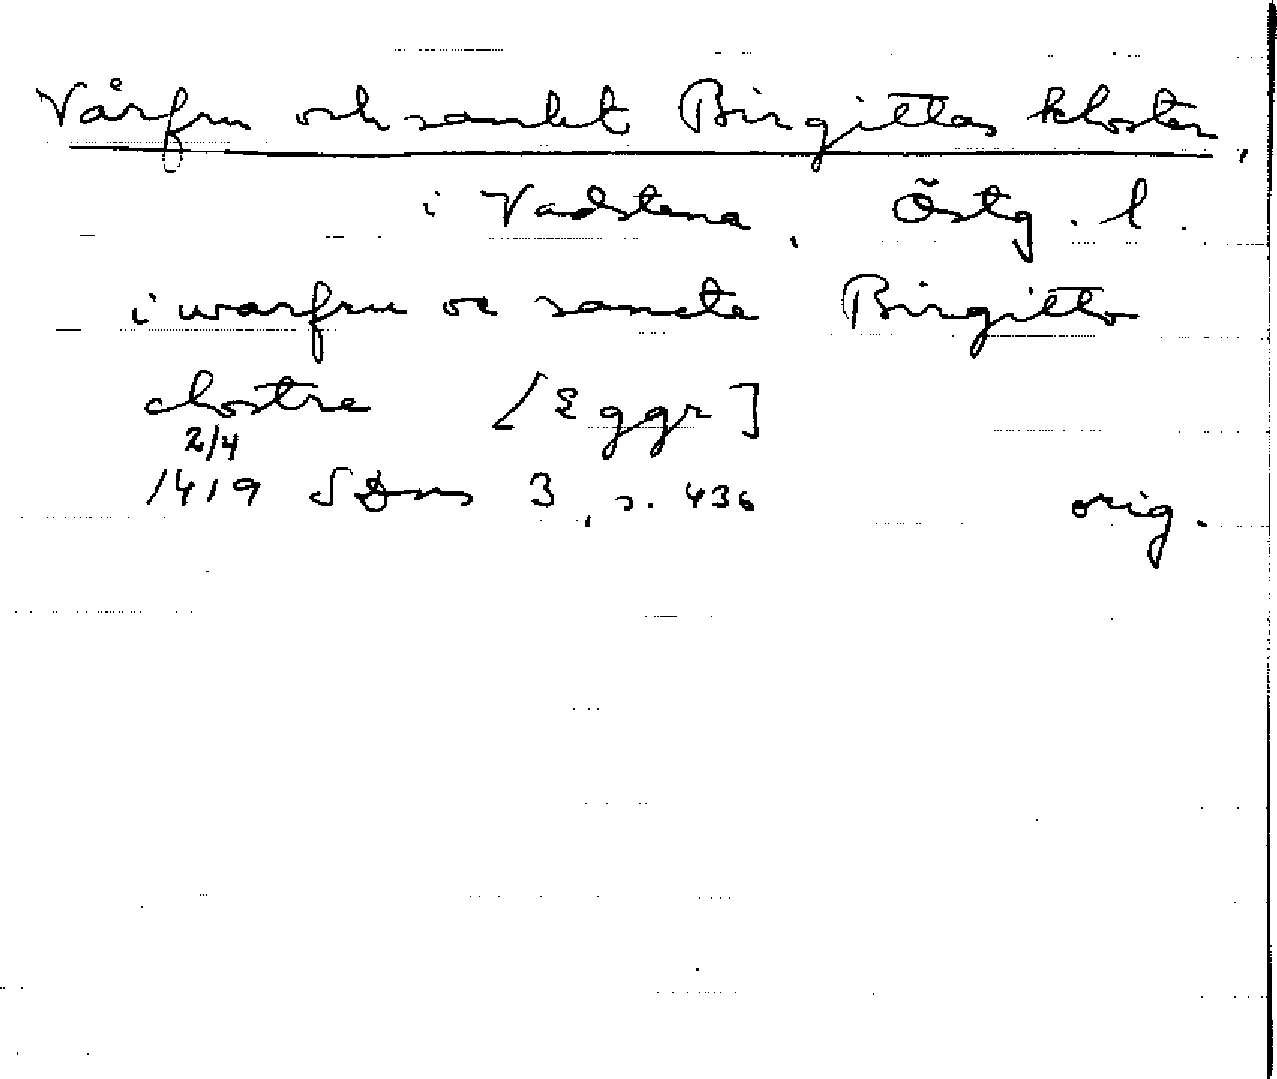 Vårfru och sankt Birgittas kloster,
i Vadstena, Östg. l.
i warfru oc sancta Birgitto
clostre [Eggr]
2/4
1419 SDns 3, s. 436 orig.